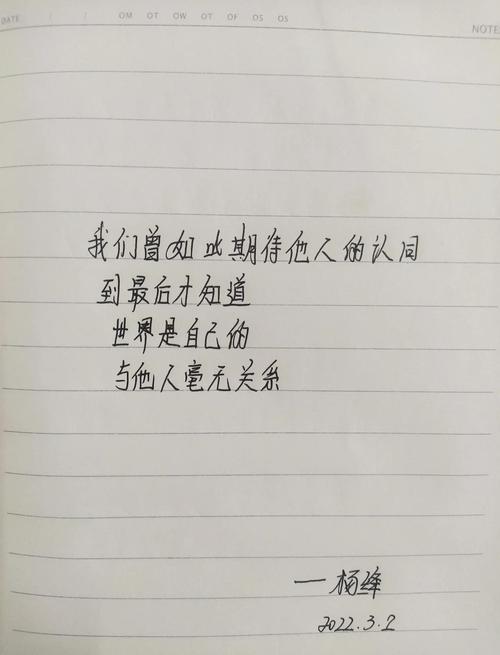 DATE / / OM OT OW OT OF OS OS
NOTE
我们曾如此期待他人的认同
到最后才知道
世界是自己的
与他人毫无关系
一杨峰
2022.3.2